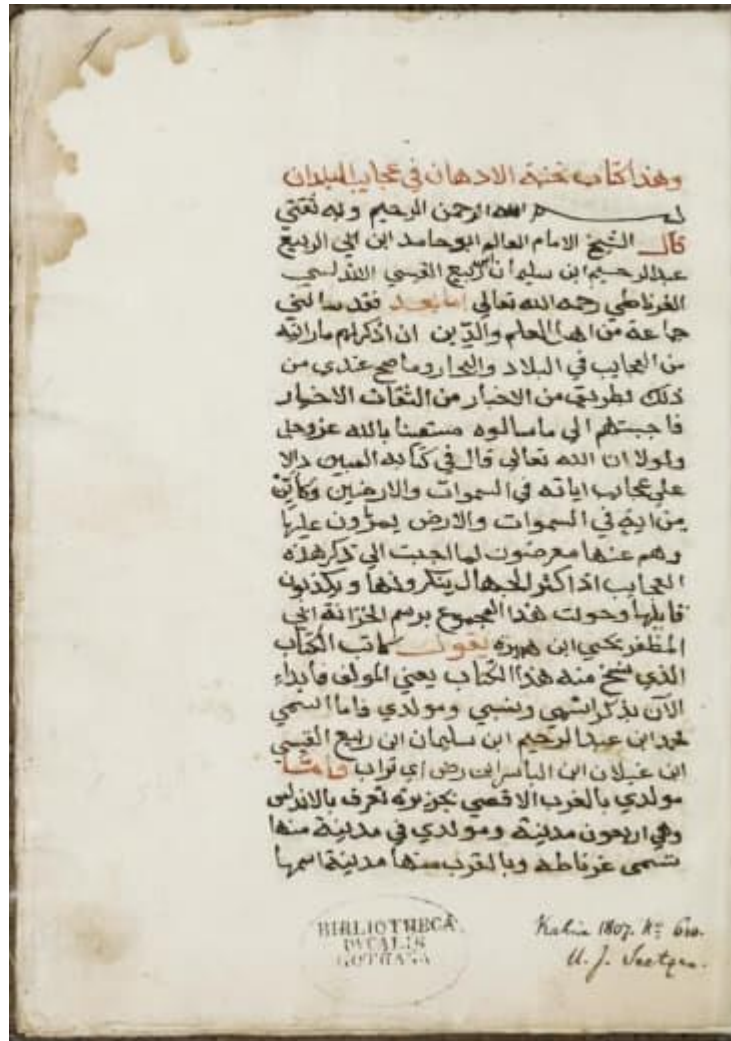 وهذا كتاب تحفة الاذهان في عجايب البلدان
بسم الله الرحمن الرحيم وبه ثقتي
قال الشيخ الامام العالم ابو حامد ابن ابي الربيع
عبد الرحيم ابن سليمان ابن ربيع القيسي الاندلسي
الغرناطي رحمه الله تعالى اما بعد فقد سالتني
جماعة من اهل العلم والدين ان اذكر لهم ما رايته
من العجايب في البلاد والبحار وما صح عندي من
ذلك بطريق من الاخبار من الثقات الاخيار
فاجبتهم الى ما سالوه مستعينا بالله عز وجل
ولولا ان الله تعالى قال في كتابه المبين دالا
على عجايب اياته في السموات والارضين وكاين
من اية في السموات والارض يمرون عليها
وهم عنها معرضون لما اجبت الى ذكر هذه
العجايب اذ اكثر الجهال ينكرونها ويكذبون
قايلها وحولت هذا المجموع برسم الخزانة ابي
المظفر يحيى ابن هبيرة يقول كاتب الكتاب
الذي نسخ منه هذا الكتاب يعني المولف فابداء
الآن بذكر اسمي ونسبي ومولدي فاما اسمي
محمد ابن عبد الرحيم ابن سليمان ابن ربيع القيسي
ابن غيلان ابن الياس ابن رضى اي تراب وامتا
مولدي بالغرب الاقصى بجزيرة تعرف بالاندلس
وهي اربعون مدينة ومولدي في مدينة منها
تسمى غرناطه وبالقرب منها مدينة اسمها
BIBLIOTHECA
DVCALIS
GOTHANA
Kahira 1807. No 610.
U. J. Seetzen.